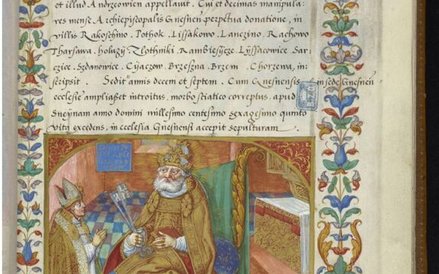 et illud Andrzeiow appellauit. Cui et decimas manipula
res mensæ Archiepiscopalis Gnesnen perpetua donatione, in
villis Rakoschino, Pothok, Lissakowo, Lanczino, Rachowo
Tharsawa, Zlothniki, Rambieschycze, Lyssacowice, Sar
czice, Szdanowice, Cijaczow, Brzeszno, Brzem, Chorzewa, in
scripsit. Sedit annis decem et septem. Cum Gnesnensis in sede
ecclesiæ ampliasset introitus, morbo sciatico correptus, apud
Sneynam anno domini millesimo centesimo sexagesimo quinto
vita excedens, in ecclesia Gnesnensi accepit sepulturam